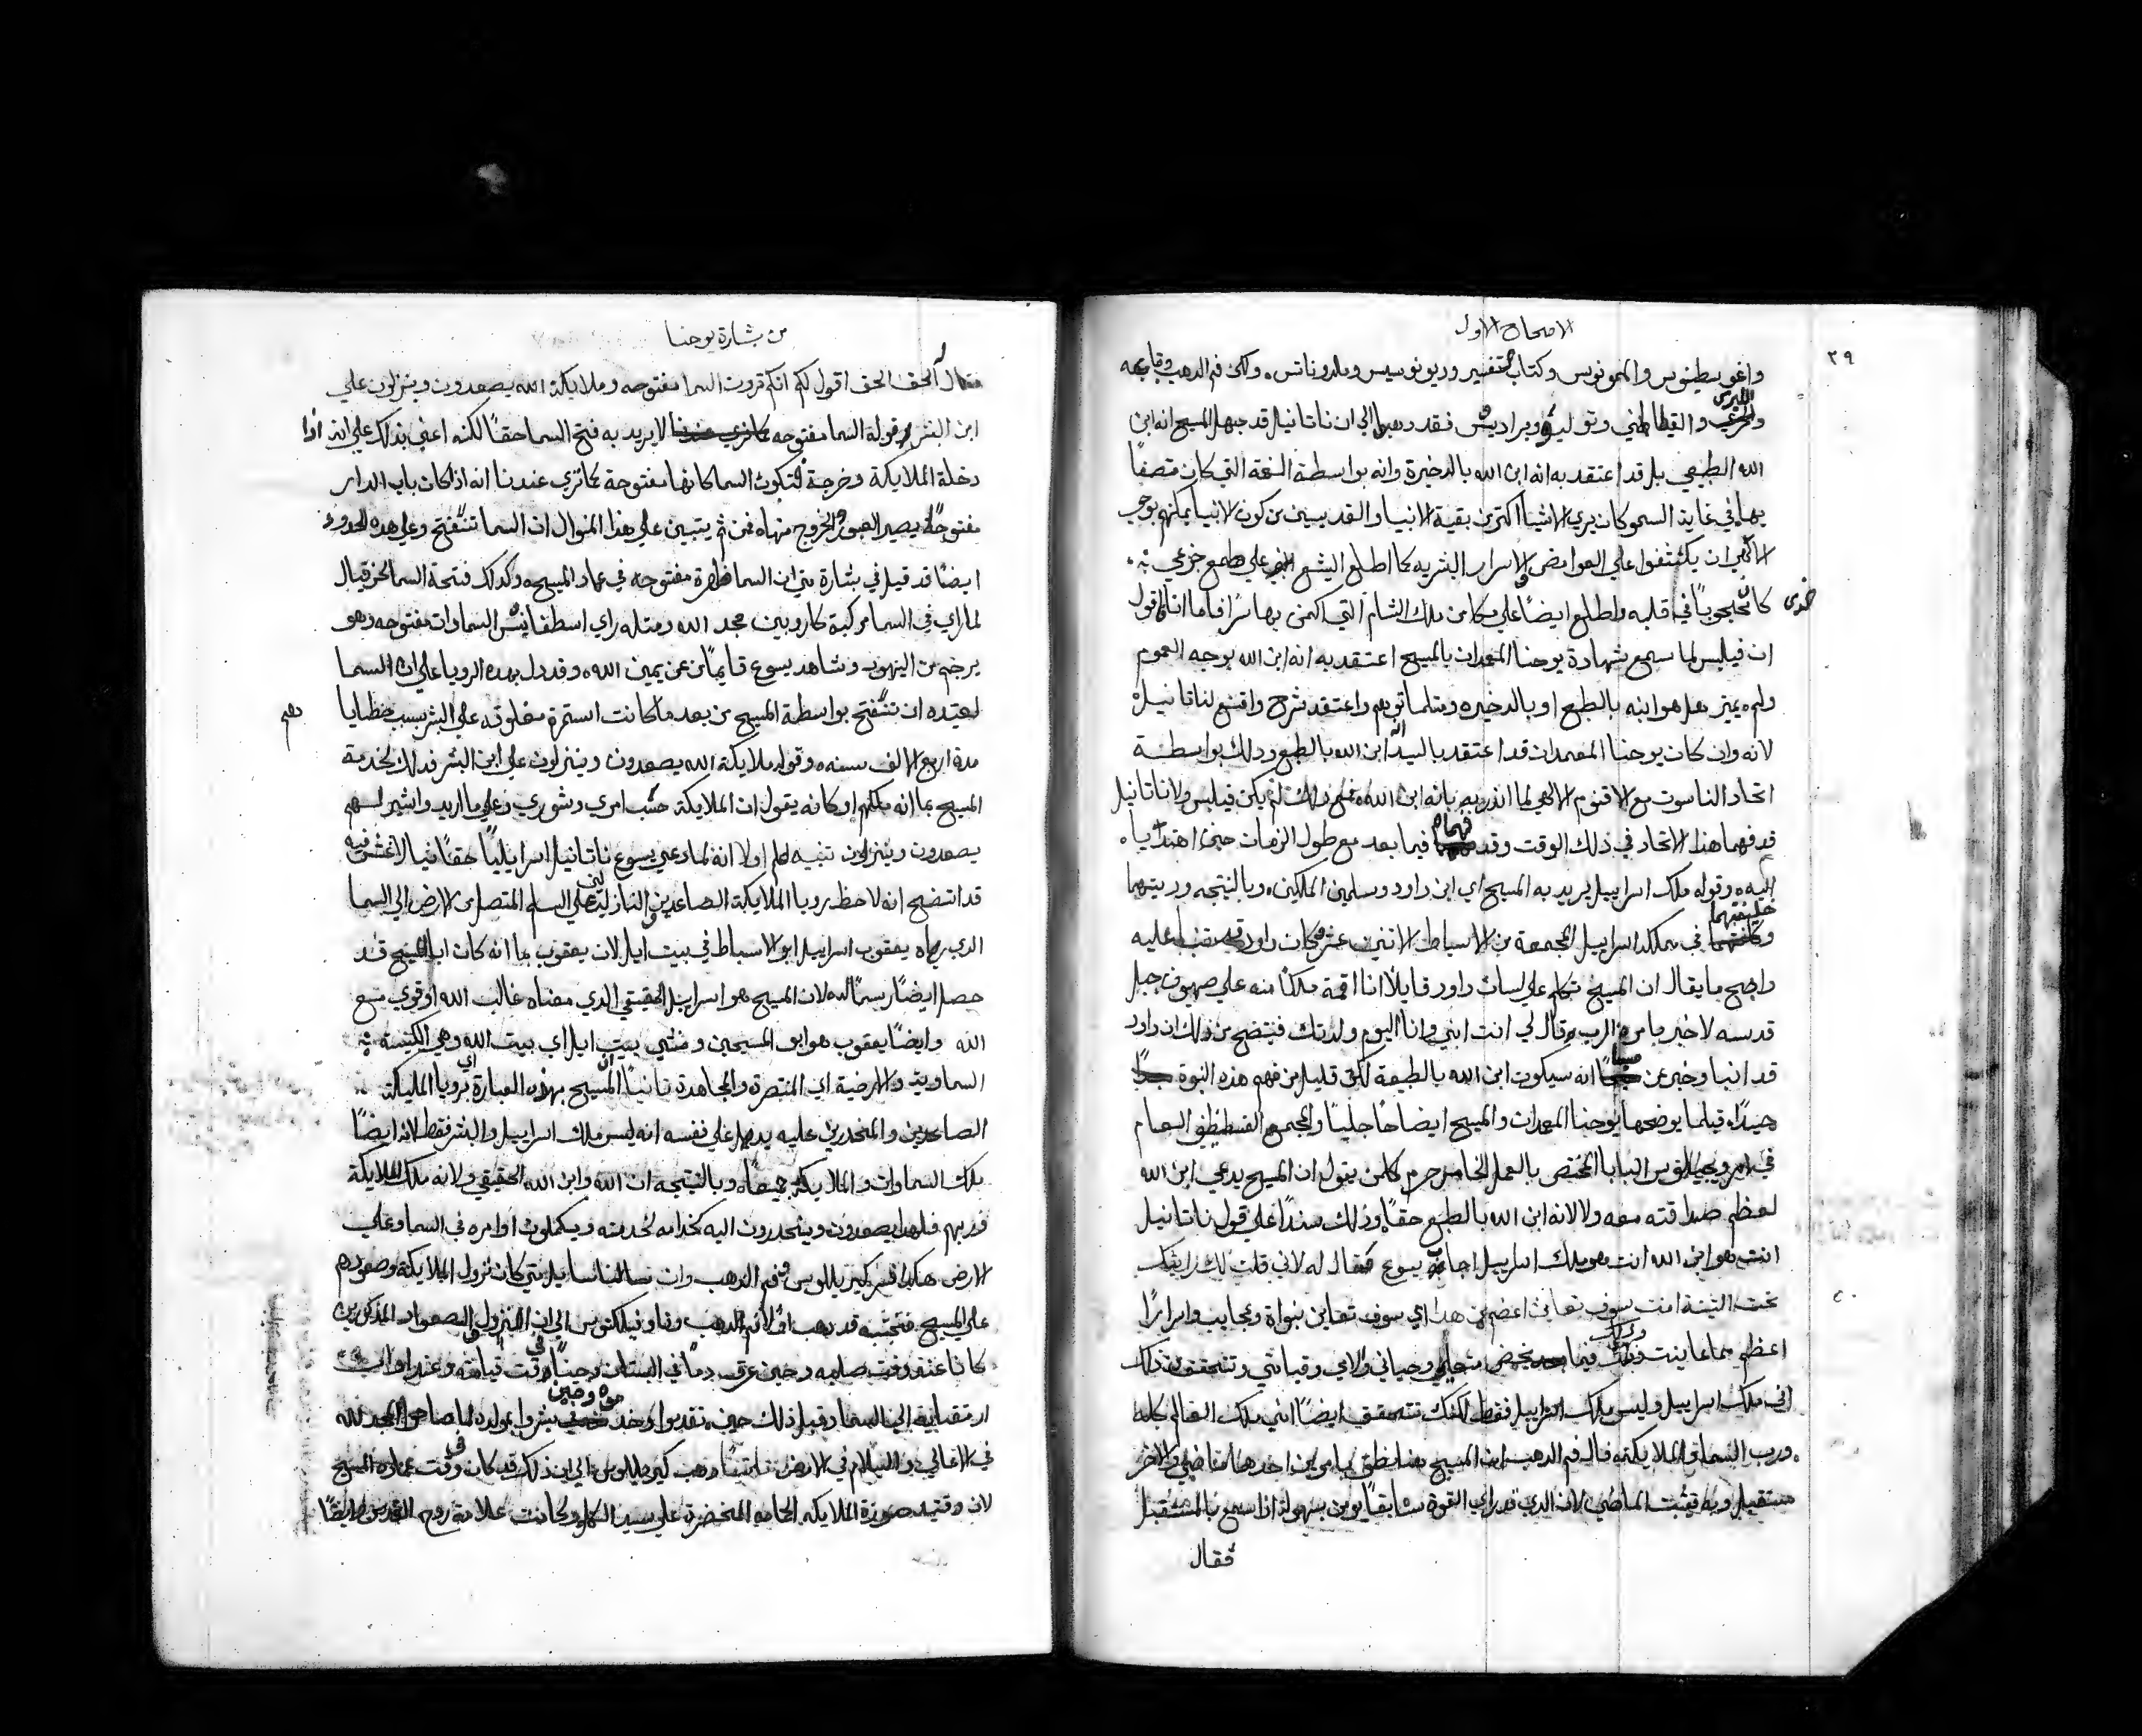 الاصحاح الاول
٣٩
واغوسطينوس والمونوس وكتاب تفسير وديونوسيس وملدوناتس. ولكن فم الذهب وتابعه
والقيطاطني وتوليتو وبراديوس فقد دهبوا الي ان ناتانيل قد جهل المسيح انه ابن
الله الطبيعي بل قد اعتقد به انه ابن الله بالدخيرة وانه بواسطة النعمة التي كان متصفاً
بها في غاية السمو كان يري الاشيا اكتر من بقية الانبيا والقديسين من كون الانبيا يمكنهم بوحي
الاهي ان يكتشفوا علي الغوامض والاسرار البشريه كما اطلع اليشع علي طمع جزعي
كان محجوباً في قلبه واطلع ايضاً علي مكامن ملك الشام التي اكمن بها سرًا فاما انا فاقول
ان فيلبس لما سمع شهادة يوحنا المعمدان بالمسيح اعتقد به انه ابن الله بوجه العموم
ولم يميز هل هو ابنه بالطبع او بالدخيره ومتلما توهم واعتقد شرح واقنع لناتانيل
لانه وان كان يوحنا المعمدان قد اعتقد بالسيد انه ابن الله بالطبع وذلك بواسطة
اتحاد الناسوت مع الاقنوم الالاهي لما اندر به بانه ابن الله فمع ذلك لم يكن فيلبس ولا ناتانيل
قد فهما هذا الاتحاد في ذلك الوقت وقد فهماه فيما بعد مع طول الزمان حين اهتديا
اليه وقوله ملك اسراييل يريد به المسيح اي ابن داود وسلمين الملكين وبالنتيجه وريتهما
وخليفتهما في مملكة اسراييل المجمعة من الاسباط الاتني عشر وكان داود عليه
واضح ما يقال ان المسيح تكلم علي لسان داود قايلاً انا اقمة ملكاً منه علي صهيون جبل
قدسه لاخبر بامر الرب وقال لي انت ابني وانا اليوم ولدتك فيتضح من ذلك ان داود
قد انبا وخبر عن مسيا انه سيكون ابن الله بالطبيعة لكن قليل من فهم هذه النبوة
جيدًا قبلما يوضحها يوحنا المعمدان والمسيح ايضاحاً جلياً والمجمع القسطنطني العام
في البابا المختص بالعمل الخامس حرم كلمن يقول ان المسيح يدعي ابن الله
لعظم صداقته معه ولا لانه ابن الله بالطبع حقاً وذلك سنداً علي قول ناتانيل
انت هو ابن الله انت هو ملك اسراييل اجاب يسوع فقال له لاني قلت لك رايتك
تحت التينة امنت سوف تعاين اعضم من هدا اي سوف تعاين بنواة وعجايب واسرارًا
اعظم مما عاينت وذلك فيما يخص وحياتي والامي وقيامتي وتتحقق من ذلك
اني ملك اسراييل وليس ملك اسراييل فقط لكنك تتحقق ايضاً انني ملك العالم كله
ورب السما والملايكة قال فم الدهب ان المسيح هنا نطق بامرين احدهما ماضي والاخر
مستقبل وبه يتبت الماضي لان الدي قد راي القوة سابقاً يومن بسهولة اذا سمع بالمستقبل
فقال
من بشارة يوحنا
فقال الحق الحق اقول لكم انكم ترون السما مفتوحه وملايكة الله يصعدون وينزلون علي
ابن البشر قوله السما مفتوحه لا يريد به فتح السما حقاً لكنه اعني بذلك علي انه اذا
دخلة الملايكة وخرجة فتكون السما كانها مفتوحة كما تري عندنا انه اذا كان باب الدار
مفتوحاً يصير العبور والخروج منها فمن ثم يتبين علي هذا المنوال ان السما تنفتح وعلي هده الحدود
ايضاً قد قيل في بشارة متي ان السما ظهرة مفتوحه في عماد المسيح وكدلك فتحة السما لحزقيال
لما راي في السما مركبة كاروبين مجد الله ومتله راي اسطفانس السماوات مفتوحه وهو
يرجم من اليهود وشاهد يسوع قايماً عن يمين الله وقد دل بهده الرويا علي ان السما
لعتيده ان تنفتح بواسطة المسيح من بعد ما كانت استمرة مغلوقه علي البشر بسبب خطايا
مدة اربع الالف سنه وقوله ملايكة الله يصعدون وينزلون علي ابن البشر فدلك لخدمة
المسيح بما انه ملكهم او كانه يقول ان الملايكة حسب امري وشوري وعلي ما اريد واشير لهم
يصعدون وينزلون تنبيه لهم اولا انه لما دعي يسوع ناتانيل اسراييلياً حقانيا لا غش فيه
قد اتضح انه لاحظ رويا الملايكة الصاعدين والنازلين علي السلم المتصل من الارض الي السما
الدي راه يعقوب اسراييل ابو الاسباط في بيت ايل لان يعقوب بما انه كان اب المسيح قد
حصل ايضاً رسماً له لان المسيح هو اسراييل الحقيقي الدي معناه غالب الله او قوي مع
الله وايضاً يعقوب هو ابو المسيحين ومنشي بيت ايل اي بيت الله وهي الكنيسه
السماوية والارضية اي المنتصرة والمجاهدة تانياً ان المسيح بهذه العبارة اي برويا المليكة
الصاعدين والمنحدرين عليه يدل علي نفسه انه ليس ملك اسراييل والبشر فقط لانه ايضاً
ملك السماوات والملايكة جميعاً وبالنتيجه ان الله وابن الله الحقيقي ولانه ملك الملايكة
وربهم فلهدا يصعدون وينحدرون اليه كخدامه لخدمته ويكملون اوامره في السما وعلي
الارض هكدا فسر كيرللوس وفم الدهب وان سالنا سايل متي كان نزول الملايكة وصعودهم
علي المسيح فنجيبه قد دهب اولاً فم الدهب وتاوفيلكتوس الي ان النزول والصعود المدكورين
كانا عنه وقت صلبه وحين عرق دماً في البستان وحيناً في وقت قيامته وعند
ارتقايه الي السما وقبل ذلك حين بشروا بمولده لما صاحوا المجد لله
في الاعالي والسلام في الارض تانياً دهب كيرللوس الي ان ذلك قد كان في وقت عماد المسيح